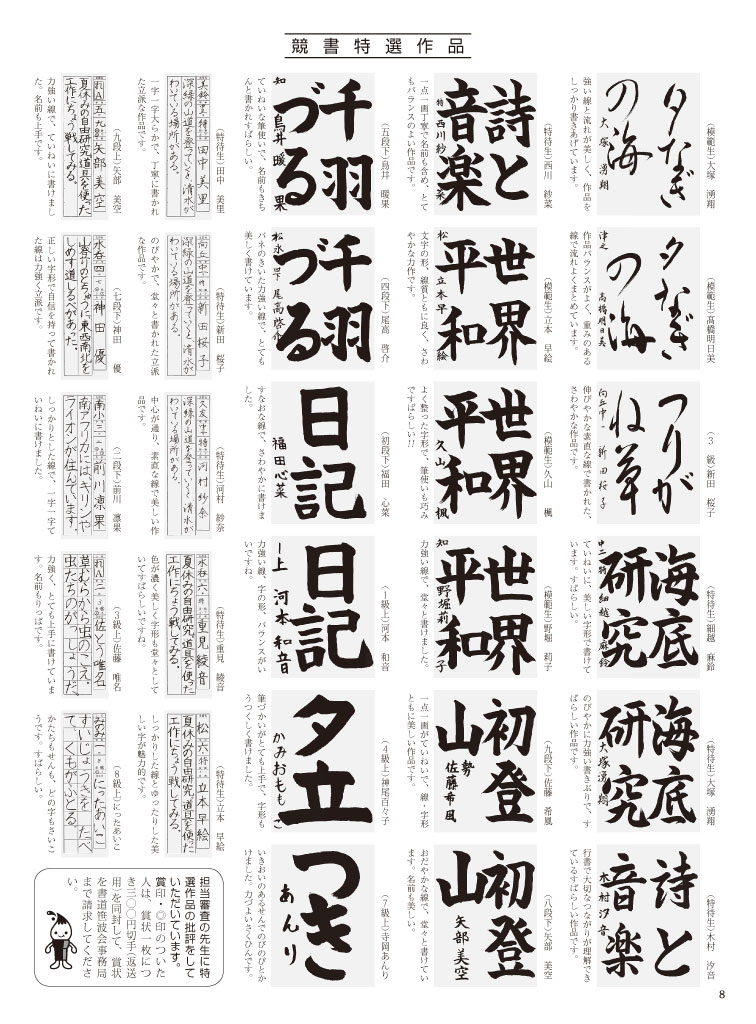 競書特選作品
夕なぎ
の海
大塚湧翔
（模範生）大塚　湧翔
強い線と流れが美しく、作品を
しっかり書きあげています。
夕なぎ
の海
津之
高橋明日美
（模範生）高橋明日美
作品バランスがよく、重みのある
線で流れよくまとめています。
つりが
ね草
向丘中
新田桜子
（３　級）新田　桜子
伸びやかな素直な線で書かれた、
さわやかな作品です。
海底
研究
中二
特
細越麻鈴
（特待生）細越　麻鈴
ていねいに、美しい字形で書けて
います。すばらしい。
海底
研究
大塚湧翔
（特待生）大塚　湧翔
のびやかに力強い書きぶりで、す
ばらしい作品です。
詩と
音楽
木村汐音
（特待生）木村　汐音
行書で大切なつながりが理解でき
ているすばらしい作品です。
詩と
音楽
特
西川紗菜
（特待生）西川　紗菜
一点一画丁寧で名前も含め、とて
もバランスのよい作品です。
世界
平和
松
立本早絵
（模範生）立本　早絵
文字の形、線質ともに良く、さわ
やかな力作です。
世界
平和
久山楓
（模範生）久山　楓
よく整った字形で、筆使いも巧み
ですばらしい!!
世界
平和
知
野堀莉子
（模範生）野堀　莉子
力強い線で、堂々と書けました。
初登
山
勢
佐藤希風
（九段下）佐藤　希風
一点一画がていねいで、線・字形
ともに美しい作品です。
初登
山
矢部美空
（八段下）矢部　美空
おだやかな線で、堂々と書けてい
ます。名前も美しい。
千羽
づる
知
鳥井暖果
（五段下）鳥井　暖果
ていねいな筆使いで、名前もきち
んと書かれすばらしい。
千羽
づる
松永
四下
尾高啓介
（四段下）尾高　啓介
バネのきいた力強い線で、とても
美しく書けています。
日記
福田心菜
（初段下）福田　心菜
すなおな線で、さわやかに書けま
した。
日記
一上
河本和音
（１級上）河本　和音
力強い線、字の形、バランスがい
いですね。
夕立
かみおももこ
（４級上）神尾百々子
筆づかいがとても上手で、字形も
うつくしく書けました。
つき
あんり
（７級上）寺岡あんり
いきおいのあるせんでのびのびとか
けました。力づよいさくひんです。
美鈴
特
田中美里
深緑の山道を登っていくと、清水が
わいている場所がある。
（特待生）田中　美里
一字一字大らかで、丁寧に書かれ
た立派な作品です。
向丘中
特
新田桜子
深緑の山道を登っていくと、清水が
わいている場所がある。
（特待生）新田　桜子
のびやかで、堂々と書かれた立派
な作品です。
久友
中
特
河村紗奈
深緑の山道を登っていくと、清水が
わいている場所がある。
（特待生）河村　紗奈
中心が通り、素直な線で美しい作
品です。
水谷
六
特
重見綾音
夏休みの自由研究道具を使った
工作にちょう戦してみる。
（特待生）重見　綾音
色が濃く美しく字形も堂々として
いてすばらしいですね。
松
六
特
立本早絵
夏休みの自由研究道具を使った
工作にちょう戦してみる。
（特待生）立本　早絵
しっかりした線とゆったりした美
しい字が魅力的です。
れA
五
九段上
矢部美空
夏休みの自由研究道具を使った
工作にちょう戦してみる。
（九段上）矢部　美空
力強い線で、ていねいに書けまし
た。名前も上手です。
水春
四
七下
神田優
山登りのとちゅうに、東西南北を
しめす道しるべがあった。
（七段下）神田　優
正しい字形で自信を持って書かれ
た線は力強く立派です。
南小
三
前川凛果
南アフリカにはキリンや
ライオンが住んでいます。
（二段下）前川　凛果
しっかりとした線で、一字一字て
いねいに書けました。
れA
二
佐とう唯名
草むらから虫のこえ。
虫たちのがっしょうだ。
（３級上）佐藤　唯名
力強く、とても上手に書けていま
す。名前もりっぱです。
みのみ
一
にったあいこ
すいじょうきをたべ
て、くもがふとる。
（８級上）にったあいこ
かたちもせんも、どの字もさいこ
うです。すばらしい。
担当審査の先生に特
選作品の批評をして
いただいています。
賞印・◎印のついた
人は、賞状一枚につ
き三〇〇円切手（返送
用）を同封して、賞状
を書道笹波会事務局
まで請求してくださ
い。
8